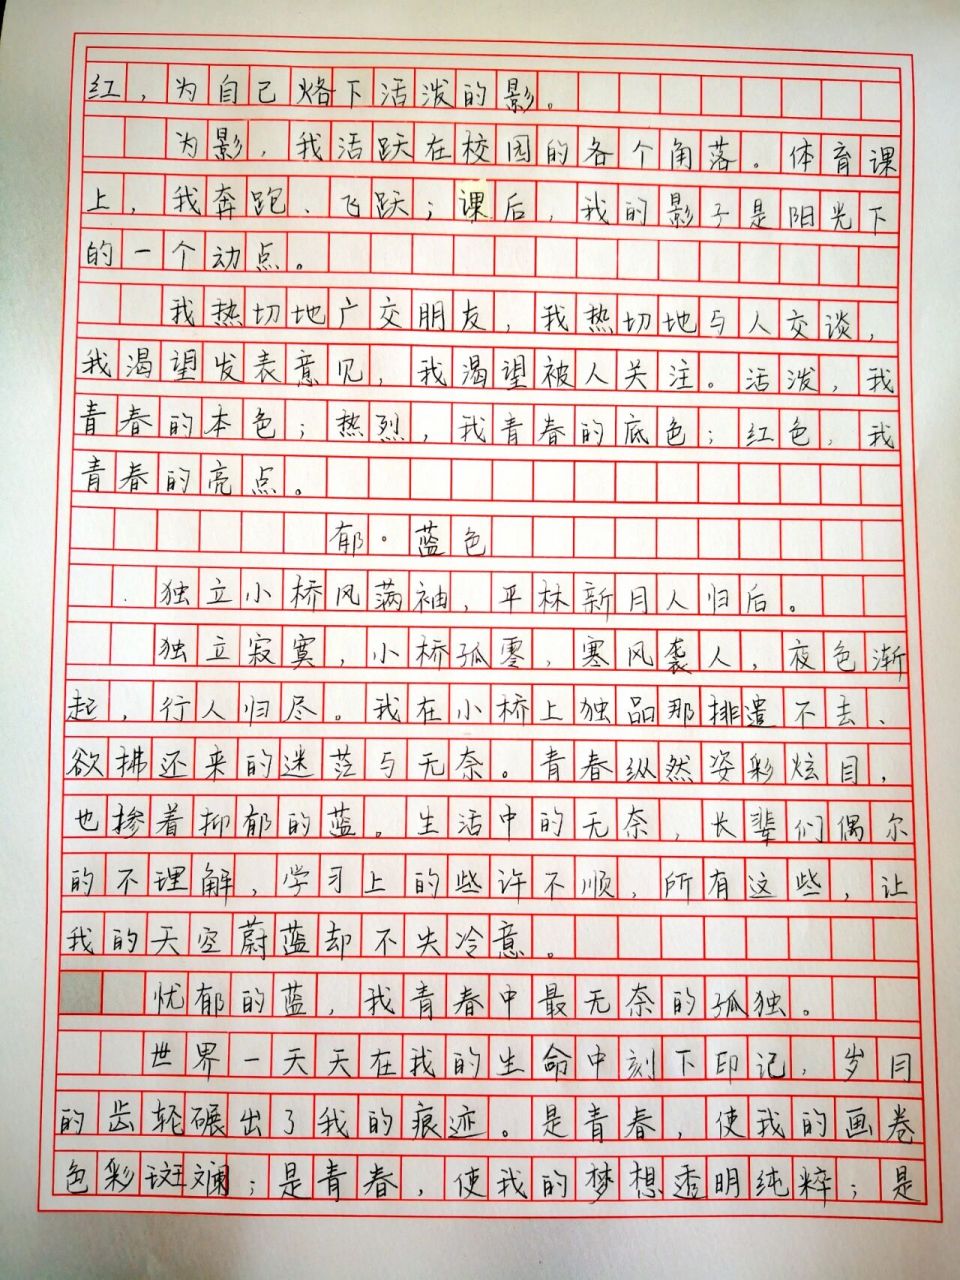 红，为自己烙下活泼的影。
为影，我活跃在校园的各个角落。体育课
上，我奔跑、飞跃；课后，我的影子是阳光下
的一个动点。
我热切地广交朋友，我热切地与人交谈，
我渴望发表意见，我渴望被人关注。活泼，我
青春的本色；热烈，我青春的底色；红色，我
青春的亮点。
郁·蓝色
独立小桥风满袖，平林新月人归后。
独立寂寞，小桥孤零，寒风袭人，夜色渐
起，行人归尽。我在小桥上独品那排遣不去、
欲拂还来的迷茫与无奈。青春纵然姿彩炫目，
也掺着抑郁的蓝。生活中的无奈，长辈们偶尔
的不理解，学习上的些许不顺，所有这些，让
我的天空蔚蓝却不失冷意。
忧郁的蓝，我青春中最无奈的孤独。
世界一天天在我的生命中刻下印记，岁月
的齿轮碾出了我的痕迹。是青春，使我的画卷
色彩斑斓；是青春，使我的梦想透明纯粹；是